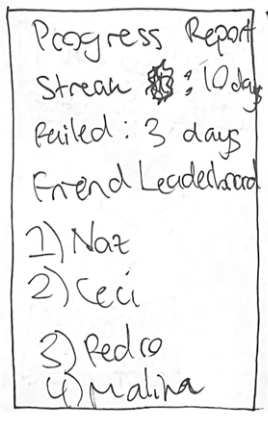 Progress Report
Streak : 10 days
Failed: 3 days
Friend Leaderboard
1) Naz
2) Ceci
3) Pedro
4) Malina